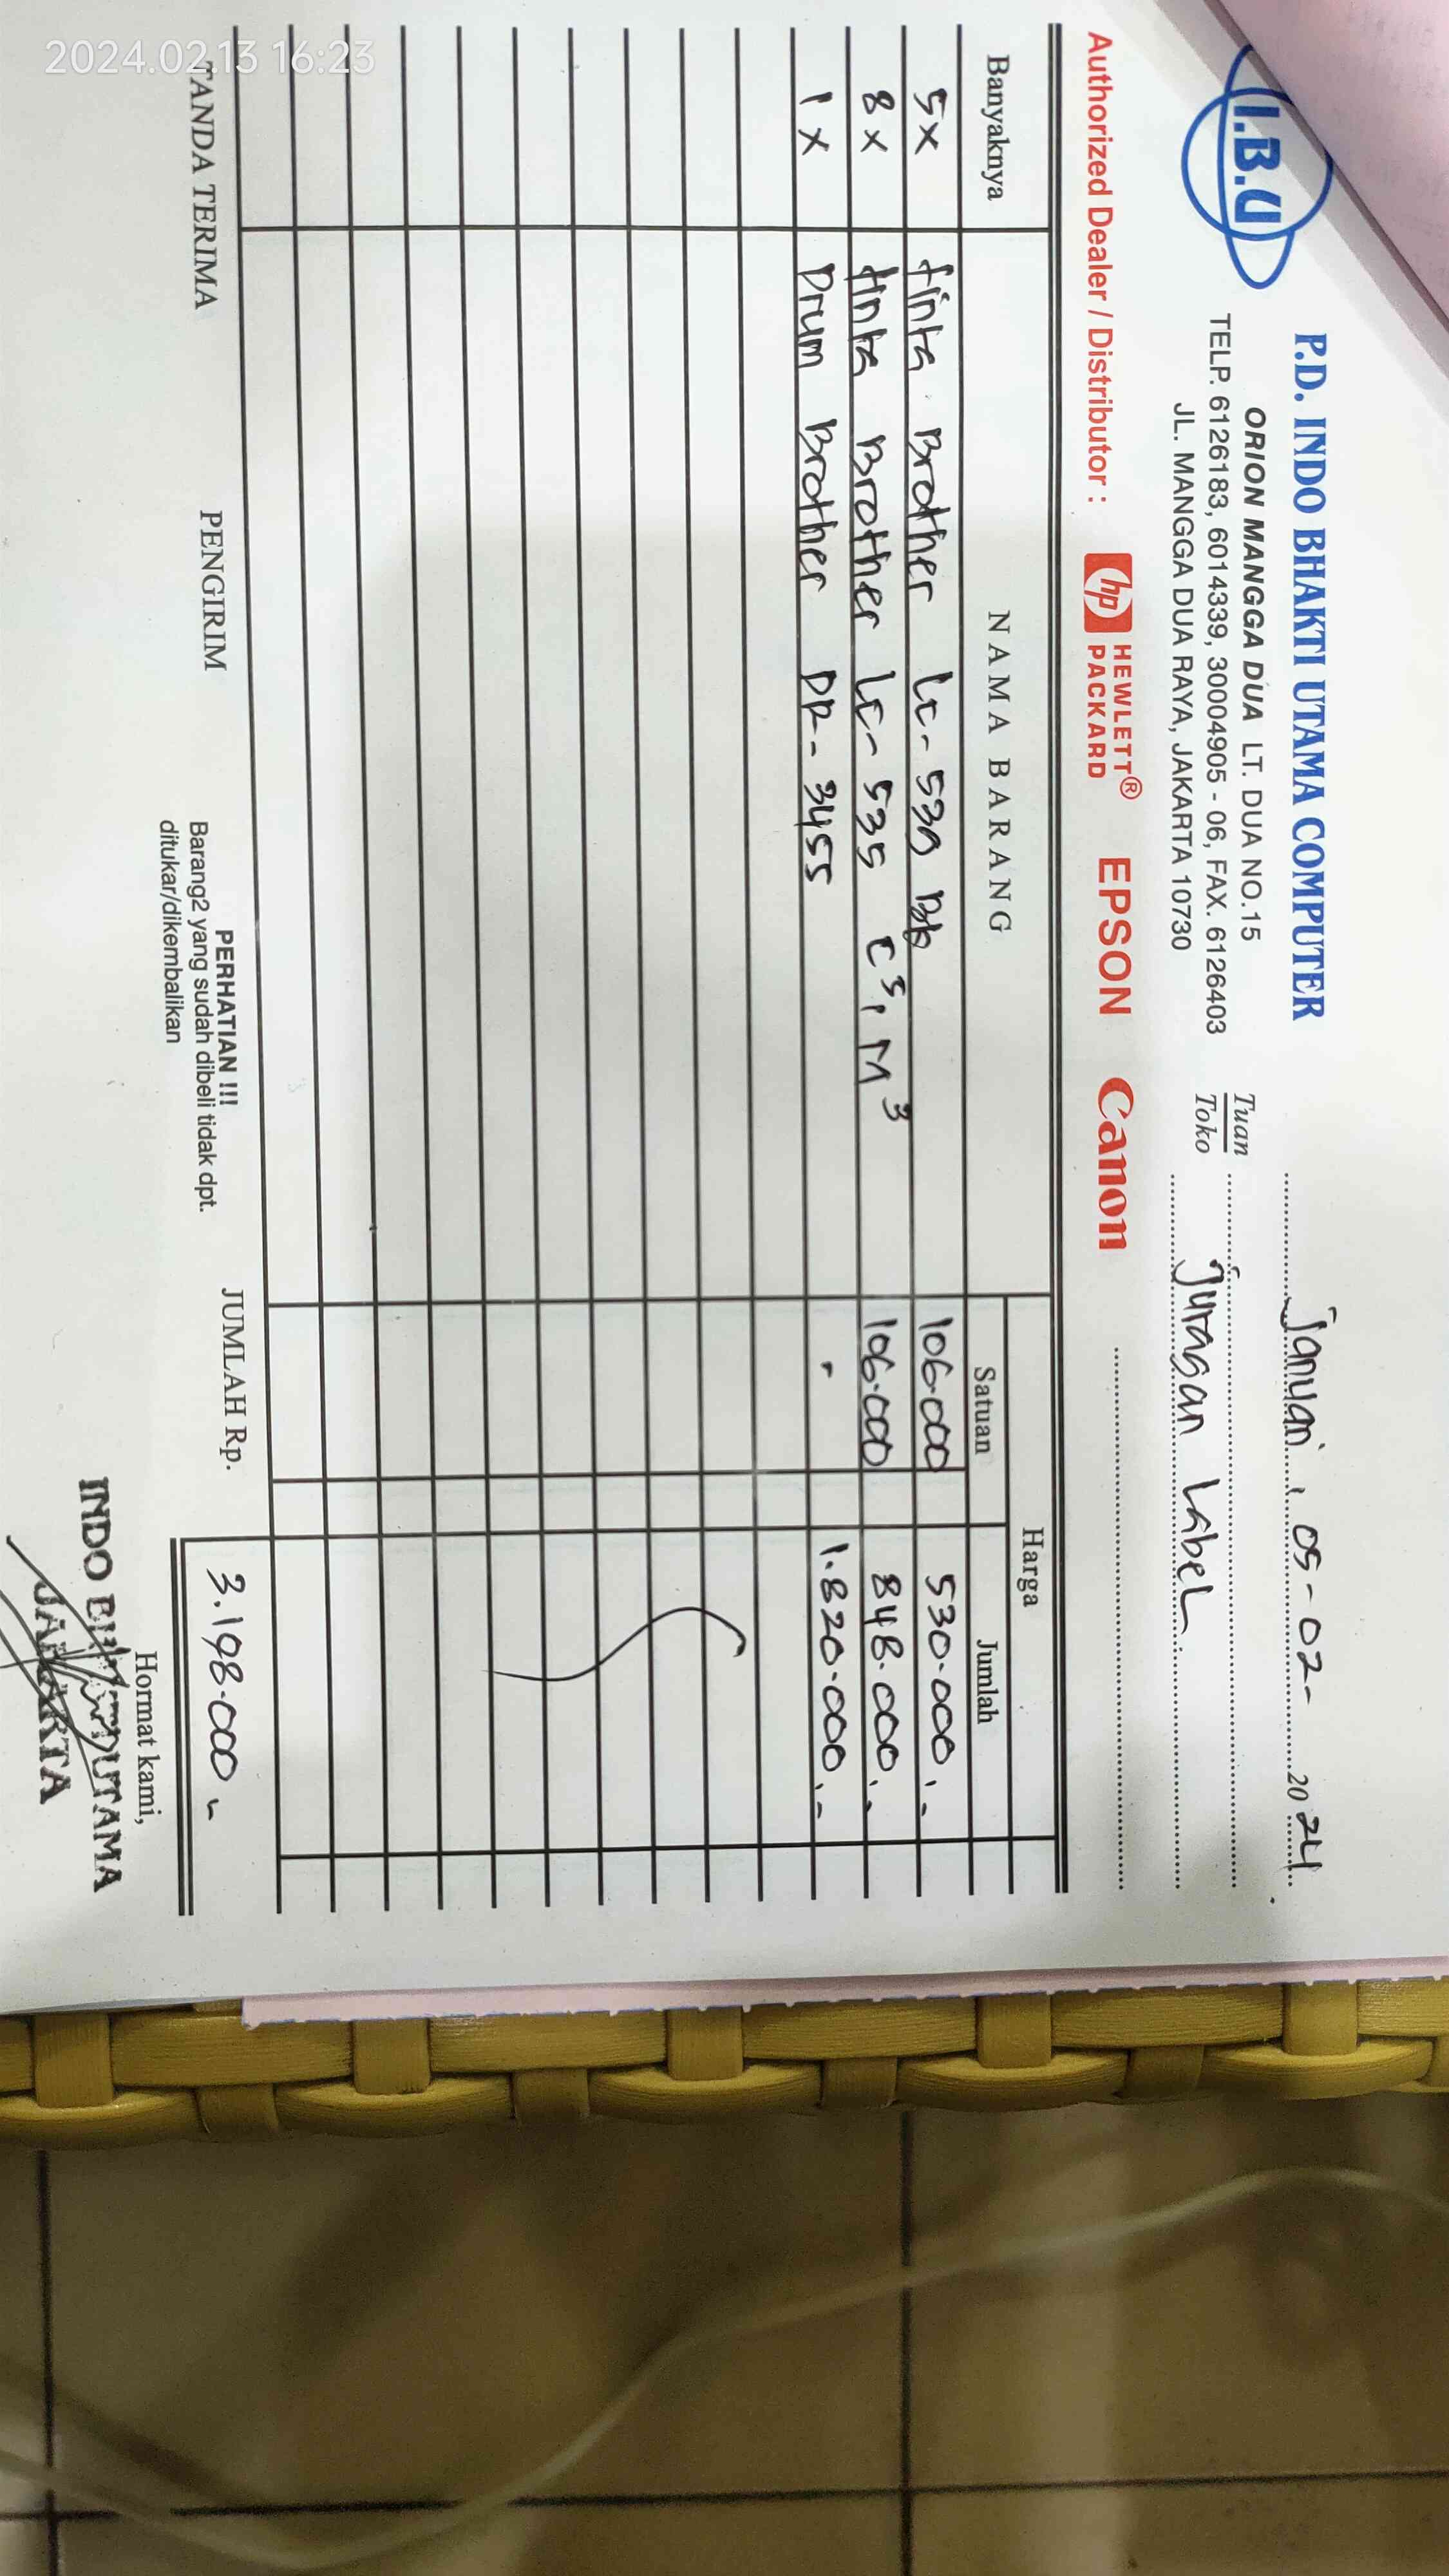 2024.02.13 16:23
I.B.U
P.D. INDO BHAKTI UTAMA COMPUTER
ORION MANGGA DUA LT. DUA NO.15
TELP. 6126183, 6014339, 30004905 - 06, FAX. 6126403
JL. MANGGA DUA RAYA, JAKARTA 10730
Januari, 05-02- 2024.
Tuan
Toko
Juragan Label.
Authorized Dealer / Distributor : hp HEWLETT® PACKARD EPSON Canon
Banyaknya NAMA BARANG Harga
Satuan Jumlah
5x tinta Brother LC- 539 Bk 106.000 530.000,-
8x tinta Brother LC- 535 C5, M3 106.000 848.000,-
1x Drum Brother DR- 3455 - 1.820.000,-
TANDA TERIMA PENGIRIM
PERHATIAN !!!
Barang2 yang sudah dibeli tidak dpt.
ditukar/dikembalikan
JUMLAH Rp. 3.198.000,-
Hormat kami,
INDO UTAMA
JAKARTA